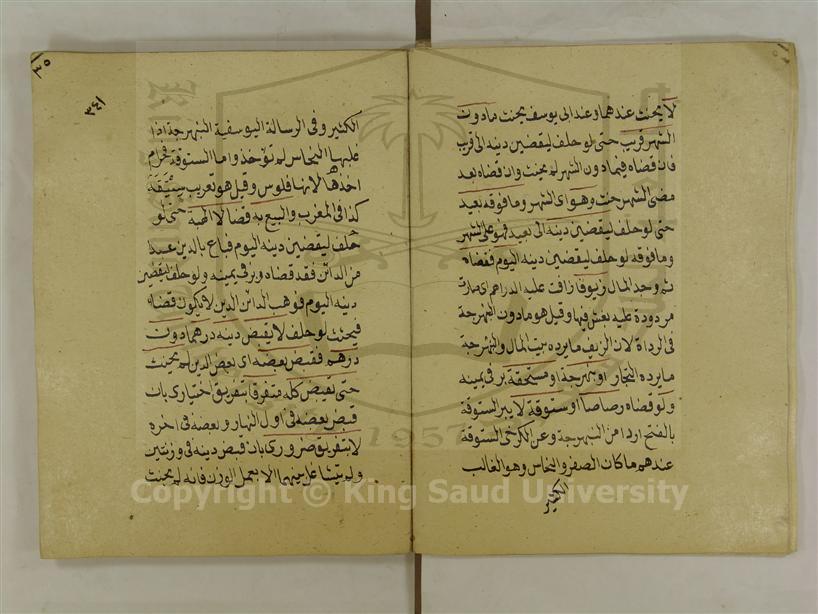 لا يحنث عندهما وعند ابى يوسف يحنث مادون
الشهر قريب حتى لو حلف ليقضين دينه الى قريب
فان قضاه فيما دون الشهر لم يحنث وان قضاه بعد
مضى الشهر حنث وهو اى الشهر وما فوقه بعيد
حتى لو حلف ليقضين دينه الى بعيد فهو على الشهر
وما فوقه لو حلف ليقضين دينه اليوم فقضاه
ثم وجد المال زيوفا زافت عليه الدراهم اى صارت
مردودة عليه بغش فيها وقيل هو مادون النبهرجة
فى الرداة لان الزيف ما يرده بيت المال والنبهرجة
ما يرده التجار او نبهرجة او مستحقة بر فى يمينه
ولو قضاه رصاصا او ستوقة لا يبر الستوقة
بالفتح اردا من النبهرجة وعن الكرخى الستوقة
عندهم ما كان الصفر والنحاس وهو الغالب
الكثير
٣٥
٣٤١
الكثير وفى الرسالة اليوسفية النبهرجة اذا
غلبها النحاس لم تؤخذ واما الستوقة فحرام
اخذها لانها فلوس وقيل هو تعريب سيتَقَه
كذا فى المغرب والبيع به قضا لا الهبة حتى لو
حلف ليقضين دينه اليوم فباع بالدين عبد
من الدائن فقد قضاه وبر فى يمينه ولو حلف ليقضين
دينه اليوم فوهب المدائن الدين لا يكون قضاه
فيحنث لو حلف لا يقبض دينه درهما دون
درهم فقبض بعضه اى بعض الدين لم يحنث
حتى يقبض كله متفرقا بتفريق اختيارى بان
قبض بعضه فى اول النهار وبعضه فى اخره
لا بتفريق ضرورى بان قبض دينه فى وزنتين
ولم يتشاغل بينهما الا بعمل الوزن فانه لم يحنث
1957
Copyright © King Saud University